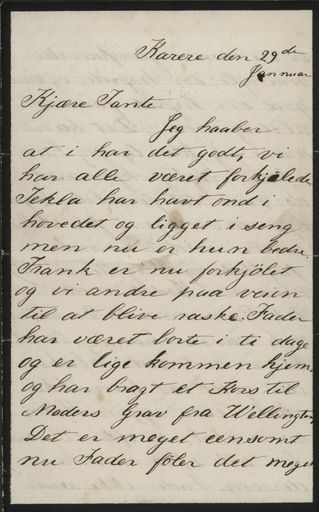 Karere den 29de
Januar
Kjære Tante
Jeg haaber
at i har det godt, vi
har alle været forkjølede
Tekla har havt ond i
hovedet og ligget i seng
men nu er hun bedre.
Frank er nu forkjölet
og vi andre paa veien
til at blive raske. Fader
har været borte i ti dage
og er lige kommen hjem,
og har bragt et Kors til
Moders Grav fra Wellington,
Det er meget eensomt
nu Fader föler det meget